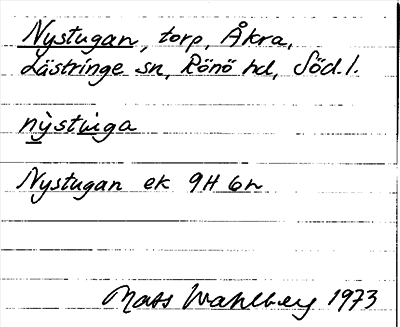 Nystugan, torp, Åkra,
Lästringe sn, Rönö hd, Söd. l.
nỳstùga
Nystugan ek 9H 6h
Mats Wahlberg 1973